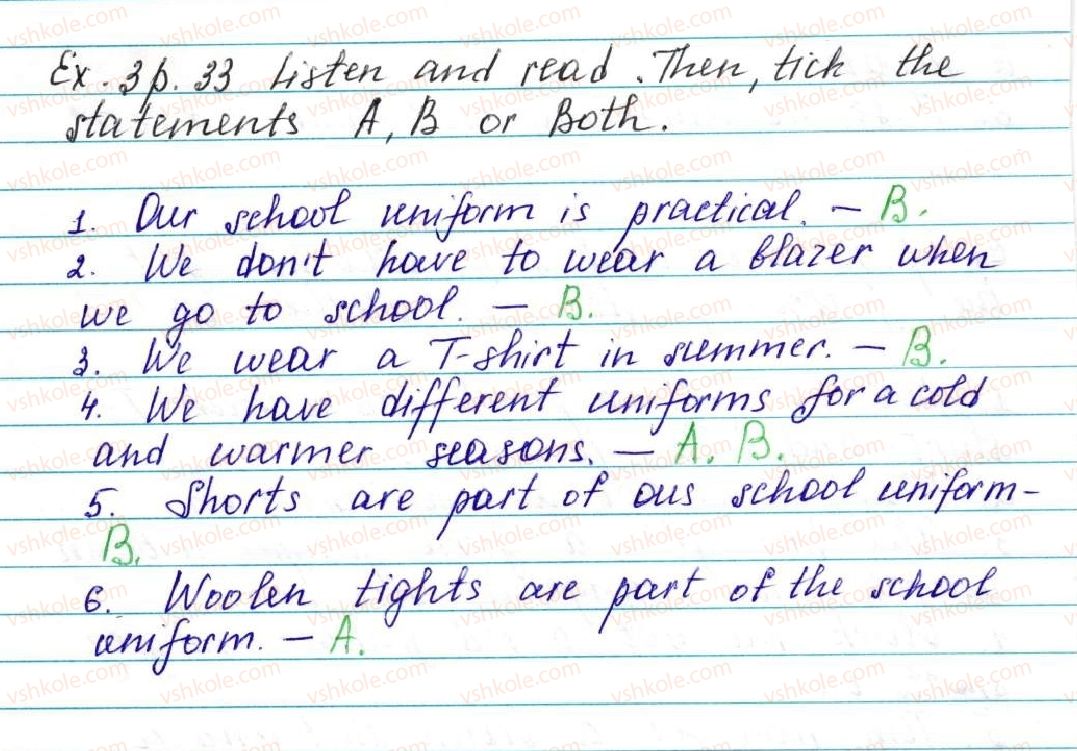 Ex. 3 p. 33 Listen and read. Then, tick the
statements A, B or Both.
1. Our school uniform is practical. – B.
2. We don't have to wear a blazer when
we go to school. – B.
3. We wear a T-shirt in summer. – B.
4. We have different uniforms for a cold
and warmer seasons. – A. B.
5. Shorts are part of ous school uniform –
B.
6. Woolen tights are part of the school
uniform. – A.